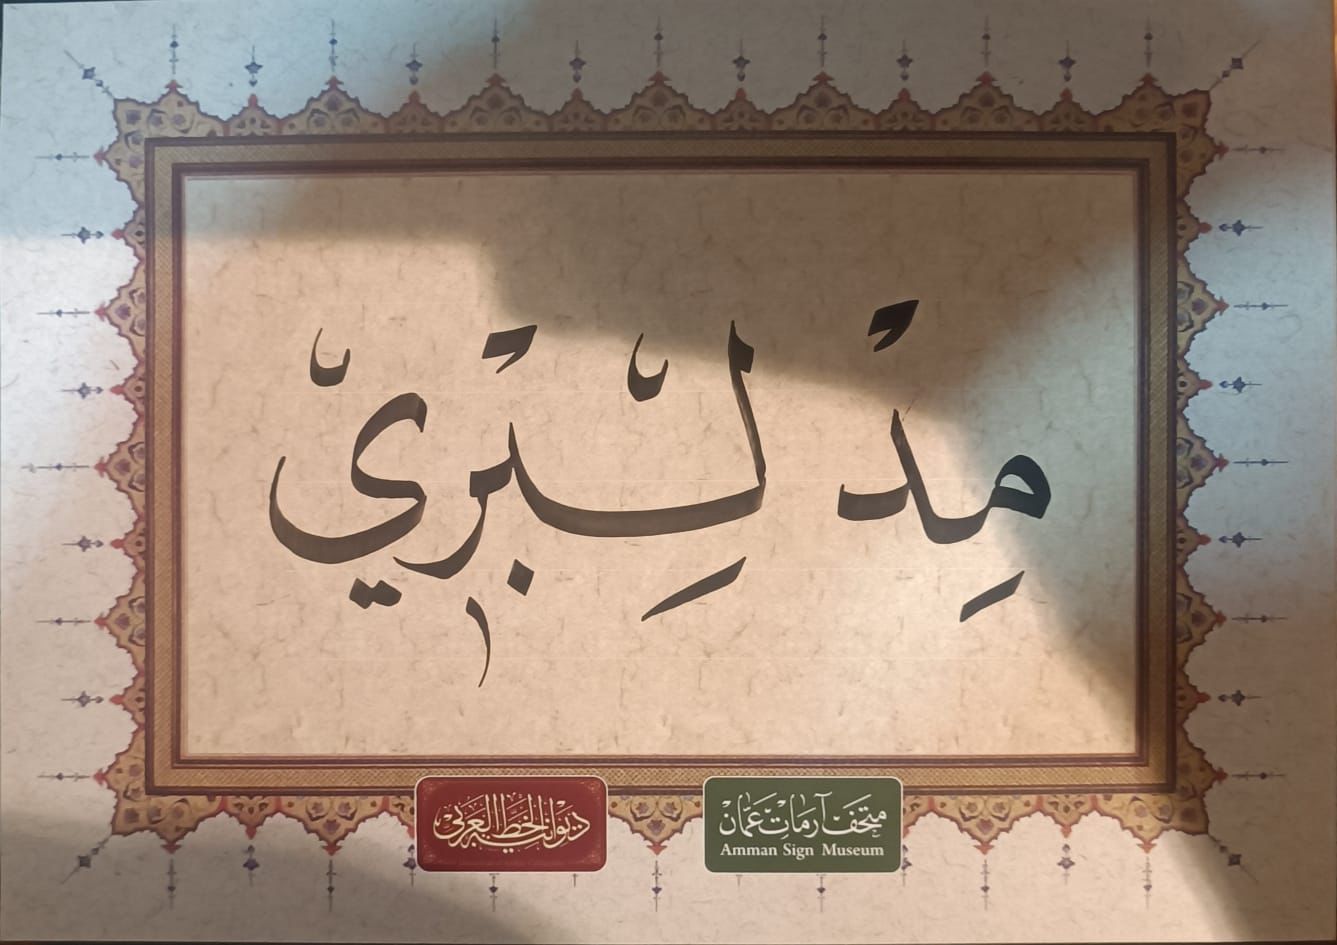 مِدْ لِّبْرِيّ
متحف آرمات عمّان
Amman Sign Museum
ديوان الخط العربي